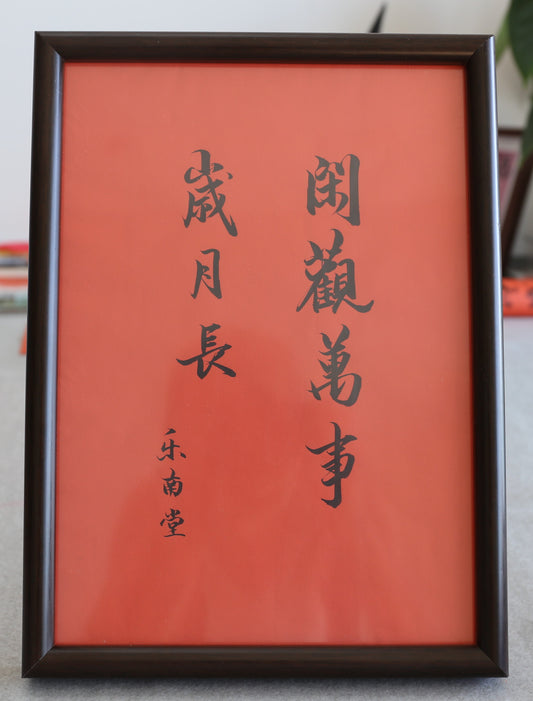 閑觀萬事
歲月長
乐南堂